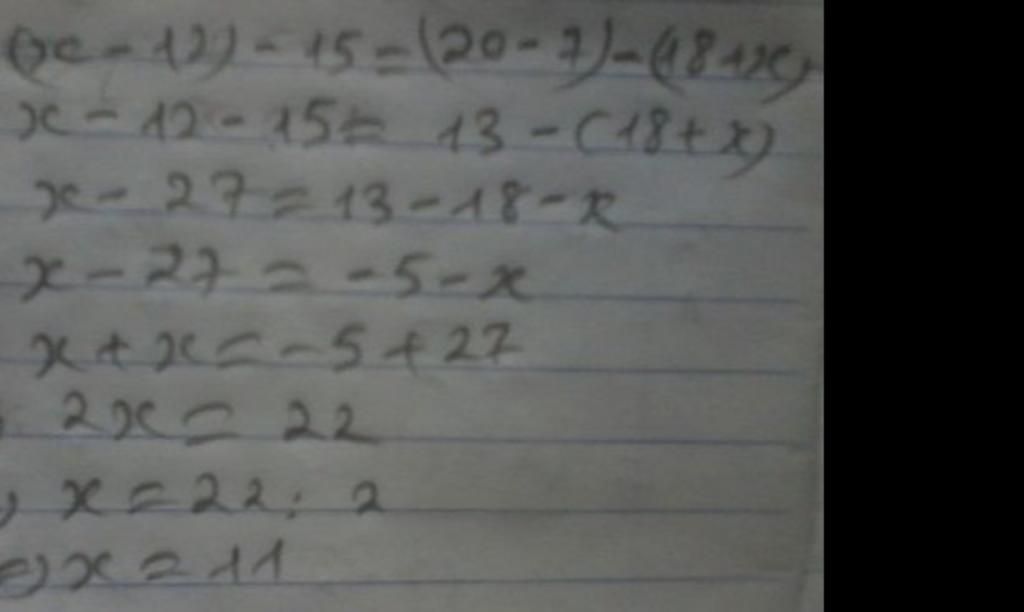 (x - 12) - 15 = (20 - 7) - (18 + x)
x - 12 - 15 = 13 - (18 + x)
x - 27 = 13 - 18 - x
x - 27 = -5 - x
x + x = -5 + 27
2x = 22
x = 22 : 2
=> x = 11